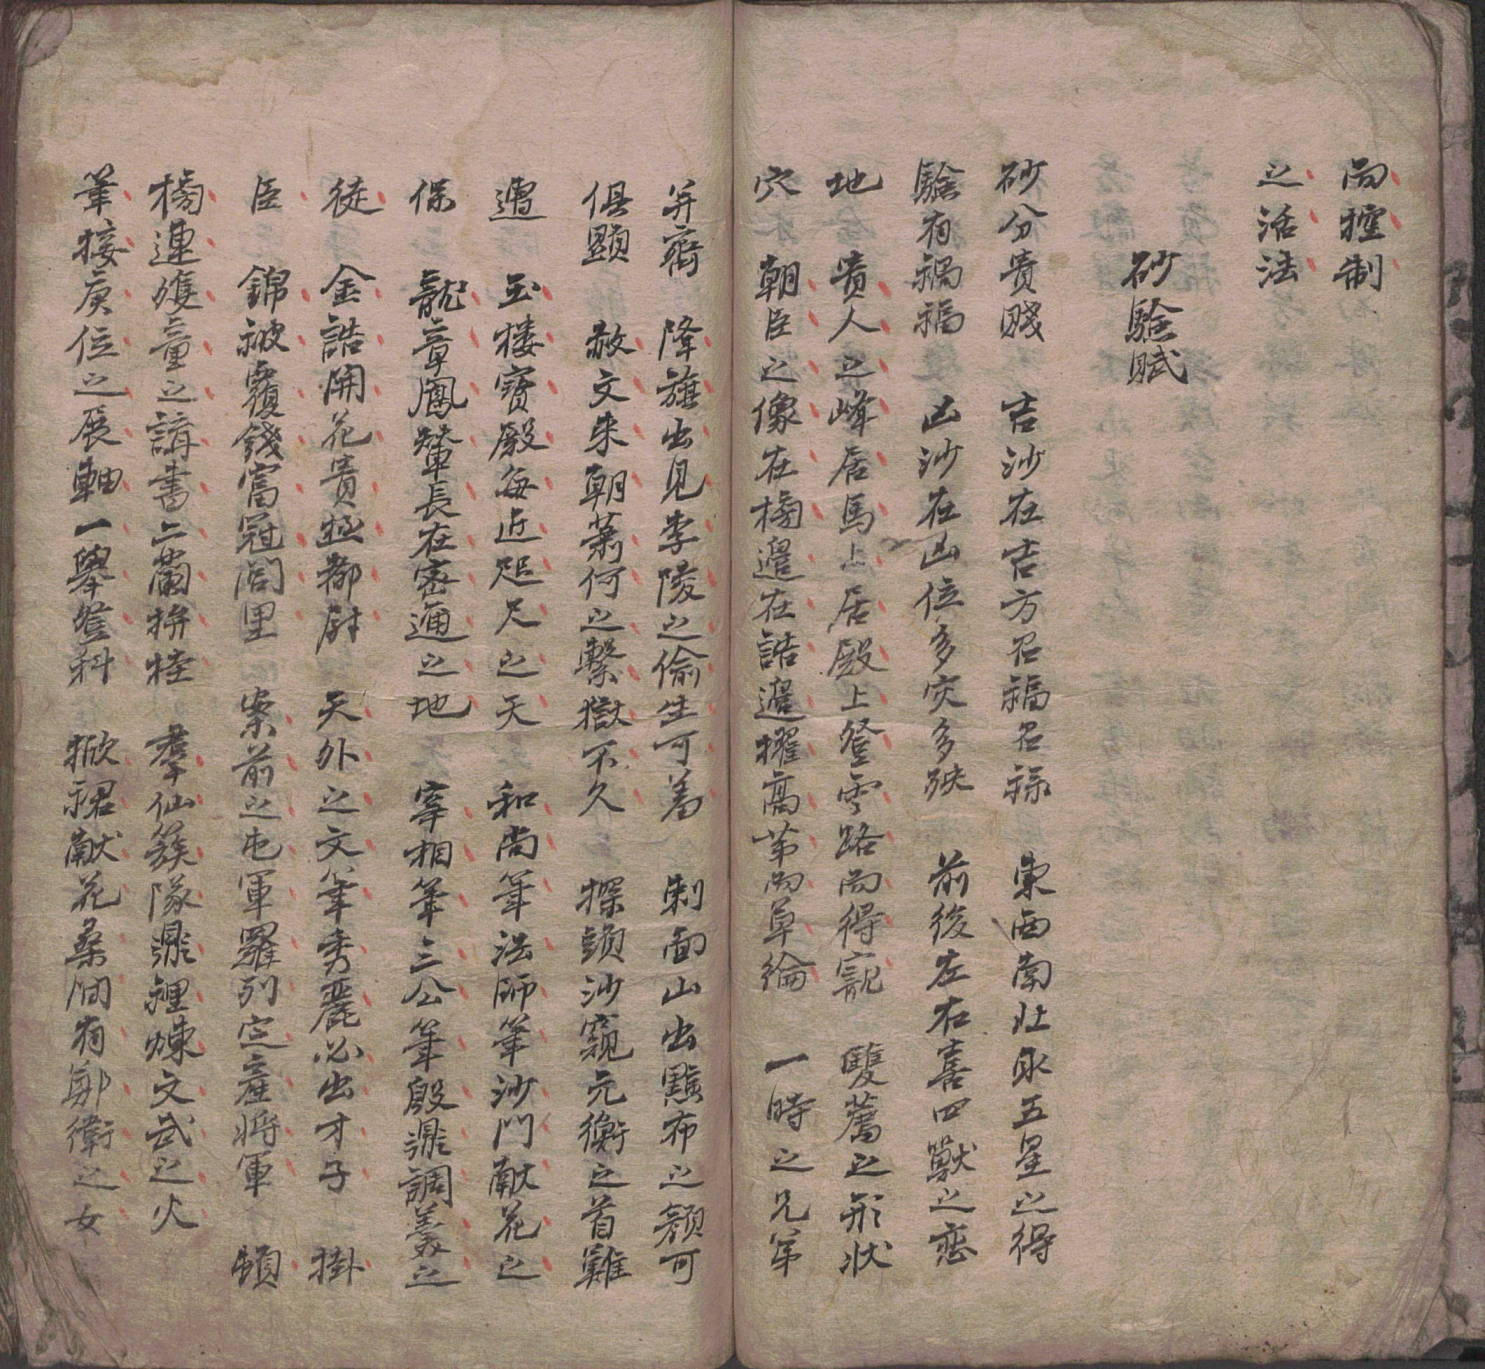 而控制
之活法
砂驗賦
砂分貴賤 吉沙在吉方召福召祿 東西南北永五星之得
驗有禍福 凶沙在凶位多灾多殃 前後左右喜四獸之恋
地 貴人之峰居馬上居殿上登雲路而得寵 雙薦之形状
穴 朝臣之像在榜邉在誥邉擢高第而草綸 一時之兄弟
并齊 降旗出見李陵之偷生可羞 刺面山出黥布之顔可
俱顕 赦文来朝蕭何之繫獄不久 探頭沙窺元衡之首難
遭 玉楼寶殿每近咫尺之天 和尚筆法師筆沙門献花之
保 龍章鳳輦長在密通之地 宰相筆三公筆殷鼎調羮之
徒 金誥開花貴極都尉 天外之文筆秀麗必出才子 掛
臣 錦被覆錢富冠閭里 案前之屯軍羅列定產将軍 頓
榜連雙童之講書二蘭拚桂 羣仙簇隊鼎鯉煉文武之火
筆接庚位之展軸一舉登科 掀裙献花桑间有鄭衛之女